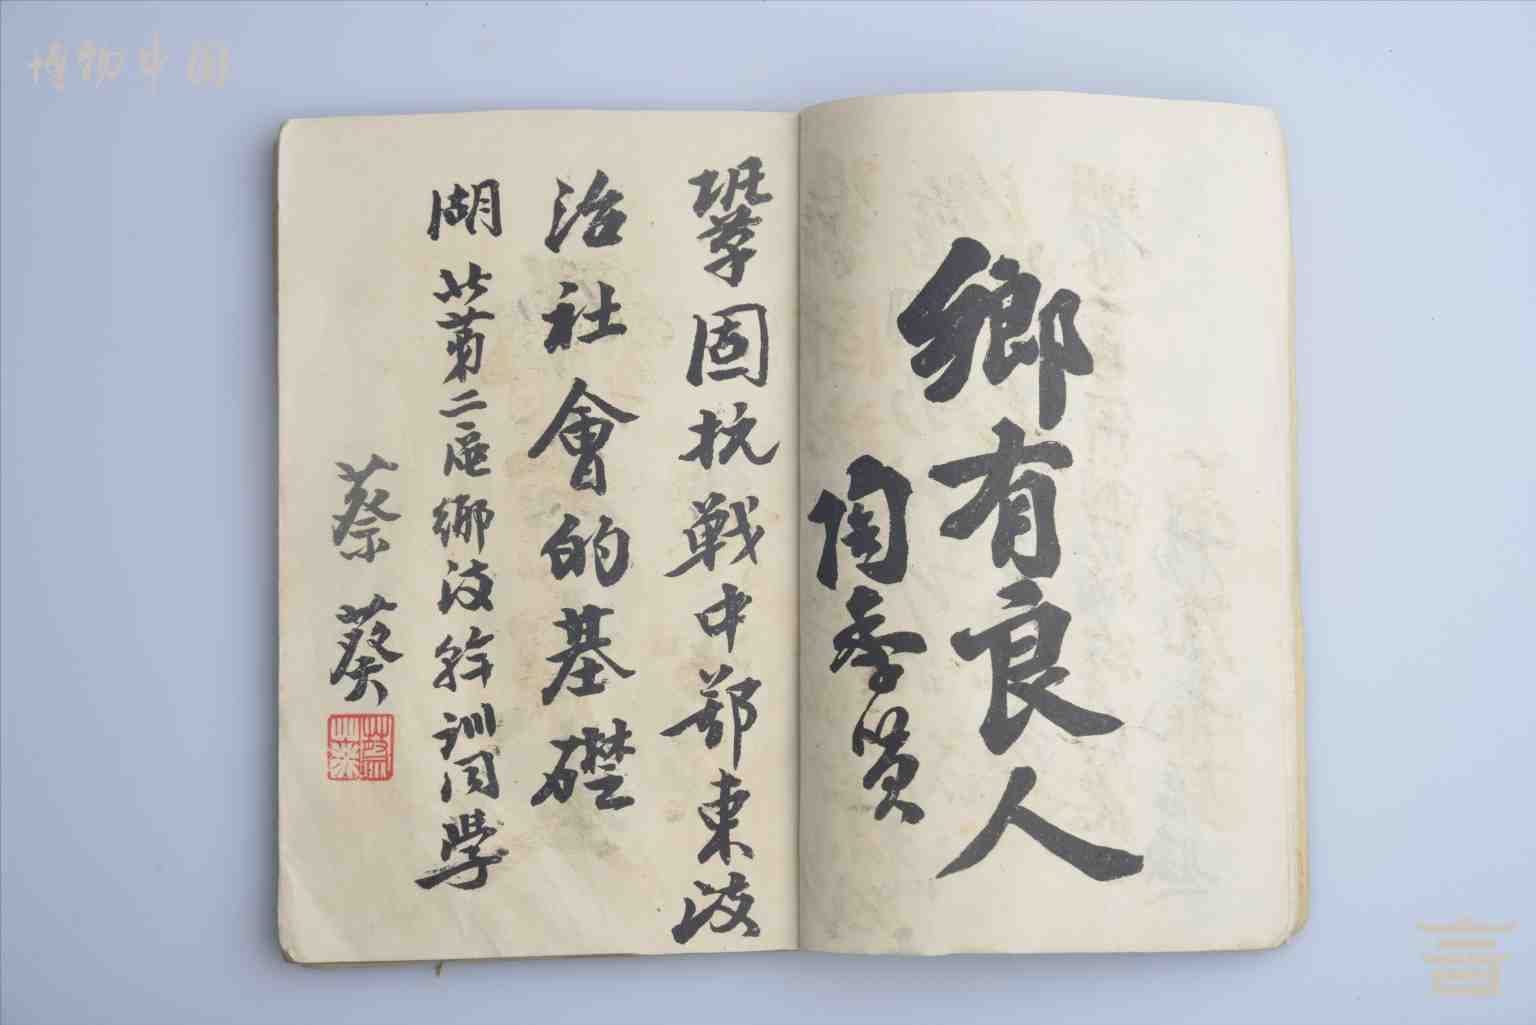 博物中国
鄉有良人
陶季贤
鞏固抗戦中鄂東政
治社會的基礎
湖北第二區鄉政幹訓同學
蔡葵
言